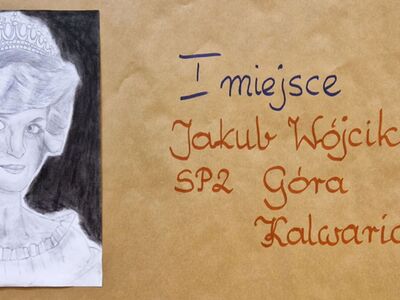 I miejsce
Jakub Wójcik
SP2 Góra
Kalwaria